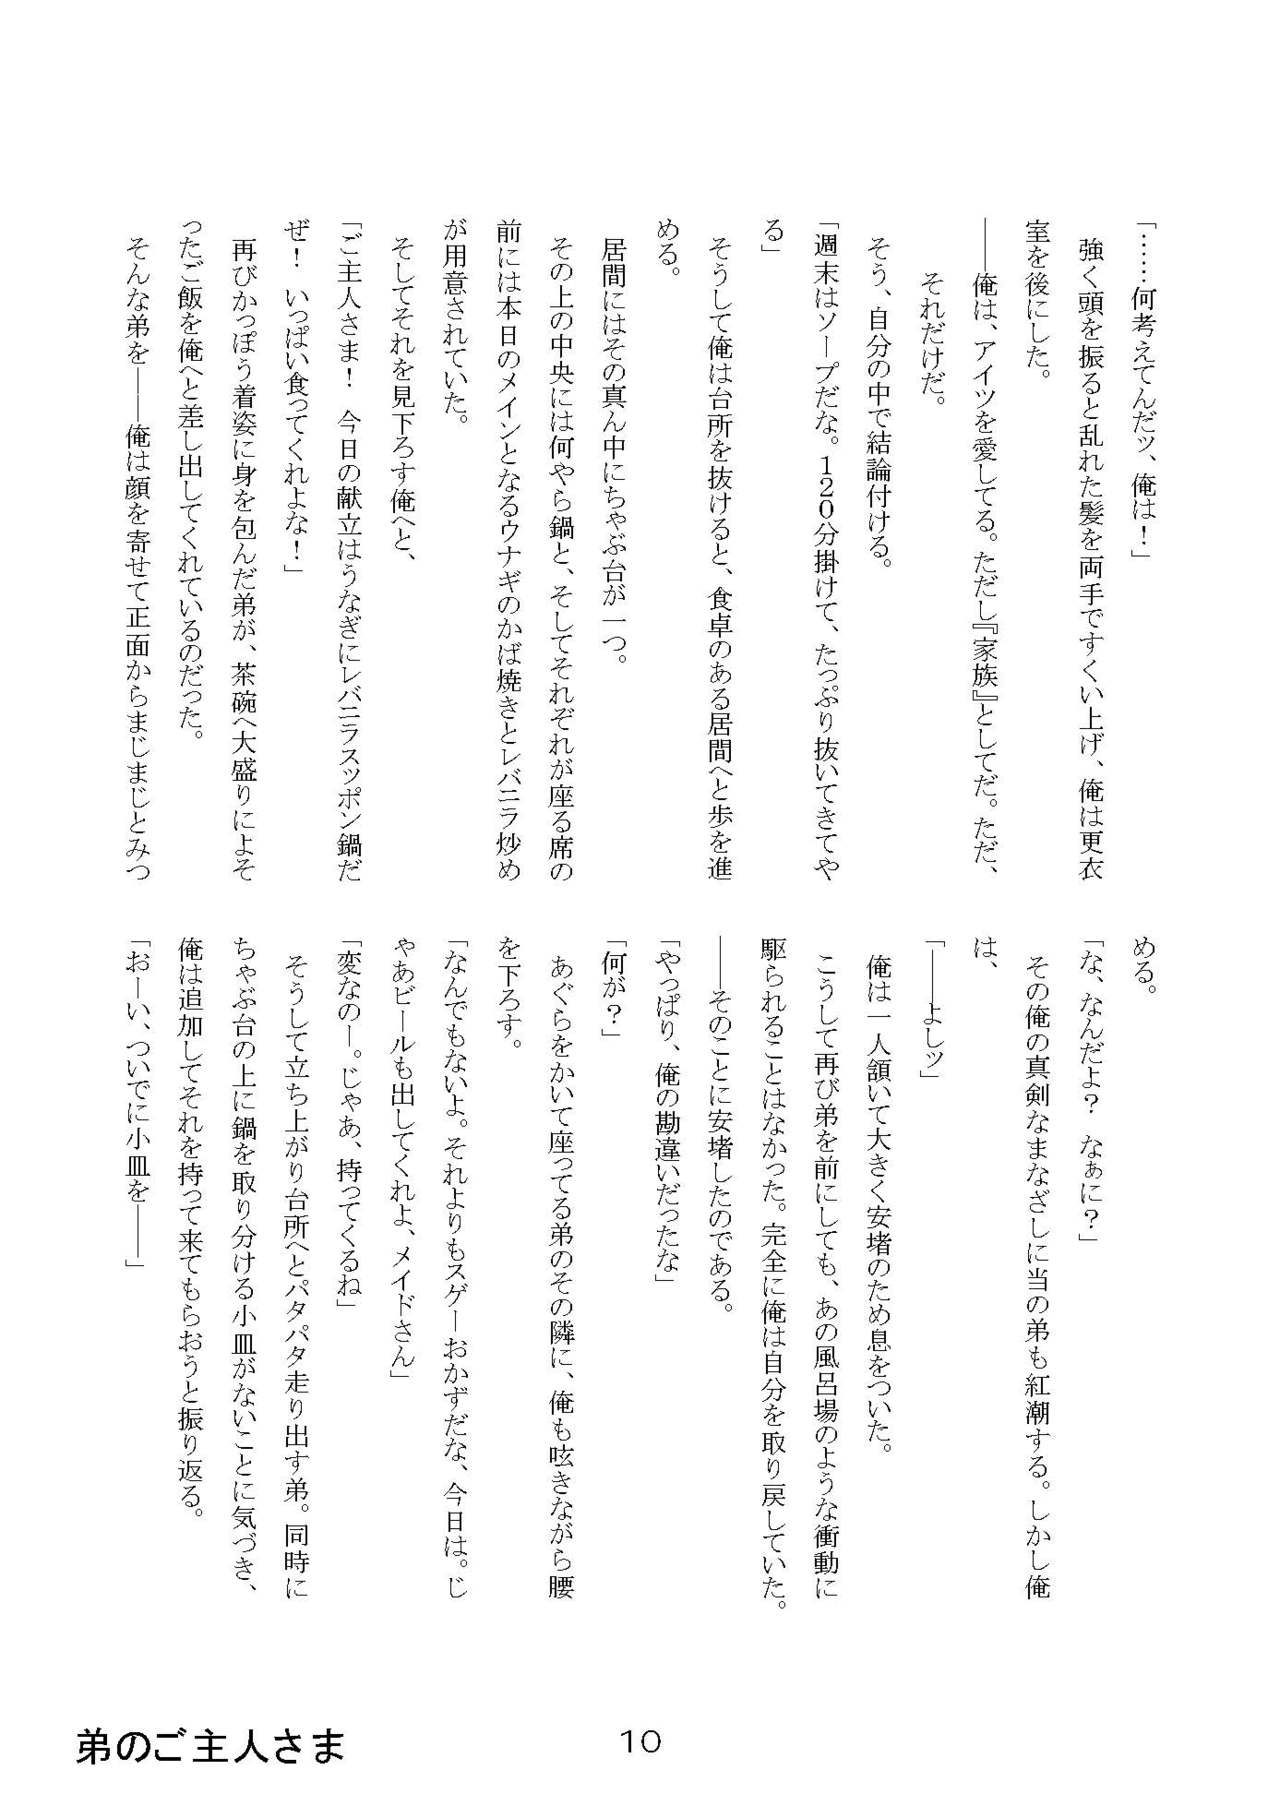 「……何考えてんだッ、俺は！」
　強く頭を振ると乱れた髪を両手ですくい上げ、俺は更衣
室を後にした。
――俺は、アイツを愛してる。ただし『家族』としてだ。ただ、
　それだけだ。
　そう、自分の中で結論付ける。
「週末はソープだな。１２０分掛けて、たっぷり抜いてきてや
る」
　そうして俺は台所を抜けると、食卓のある居間へと歩を進
める。
　居間にはその真ん中にちゃぶ台が一つ。
　その上の中央には何やら鍋と、そしてそれぞれが座る席の
前には本日のメインとなるウナギのかば焼きとレバニラ炒め
が用意されていた。
　そしてそれを見下ろす俺へと、
「ご主人さま！　今日の献立はうなぎにレバニラスッポン鍋だ
ぜ！　いっぱい食ってくれよな！」
　再びかっぽう着姿に身を包んだ弟が、茶碗へ大盛りによそ
ったご飯を俺へと差し出してくれているのだった。
　そんな弟を――俺は顔を寄せて正面からまじまじとみつ
める。
「な、なんだよ？　なぁに？」
　その俺の真剣なまなざしに当の弟も紅潮する。しかし俺
は、
「――よしッ」
　俺は一人頷いて大きく安堵のため息をついた。
　こうして再び弟を前にしても、あの風呂場のような衝動に
駆られることはなかった。完全に俺は自分を取り戻していた。
――そのことに安堵したのである。
「やっぱり、俺の勘違いだったな」
「何が？」
　あぐらをかいて座ってる弟のその隣に、俺も呟きながら腰
を下ろす。
「なんでもないよ。それよりもスゲーおかずだな、今日は。じ
ゃあビールも出してくれよ、メイドさん」
「変なのー。じゃあ、持ってくるね」
　そうして立ち上がり台所へとパタパタ走り出す弟。同時に
ちゃぶ台の上に鍋を取り分ける小皿がないことに気づき、
俺は追加してそれを持って来てもらおうと振り返る。
「おーい、ついでに小皿を――」
10
弟のご主人さま